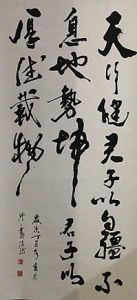 天行健君子以自彊不
息地勢坤君子以
厚德載物